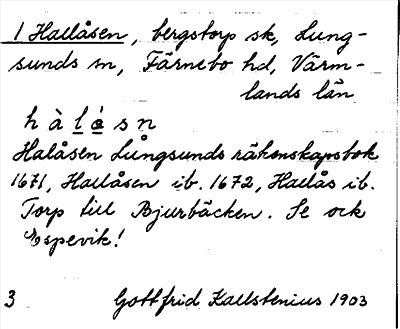 1 Hallåsen, bergstorp sk, Lung-
sunds sn, Färnebo hd, Värm-
lands län
h à l ǻ s n
Halåsen Lungsunds räkenskapsbok
1671, Hallåsen ib. 1672, Hallås ib.
Torp till Bjurbäcken. Se ock
Espevik!
3 Gottfrid Kallstenius 1903